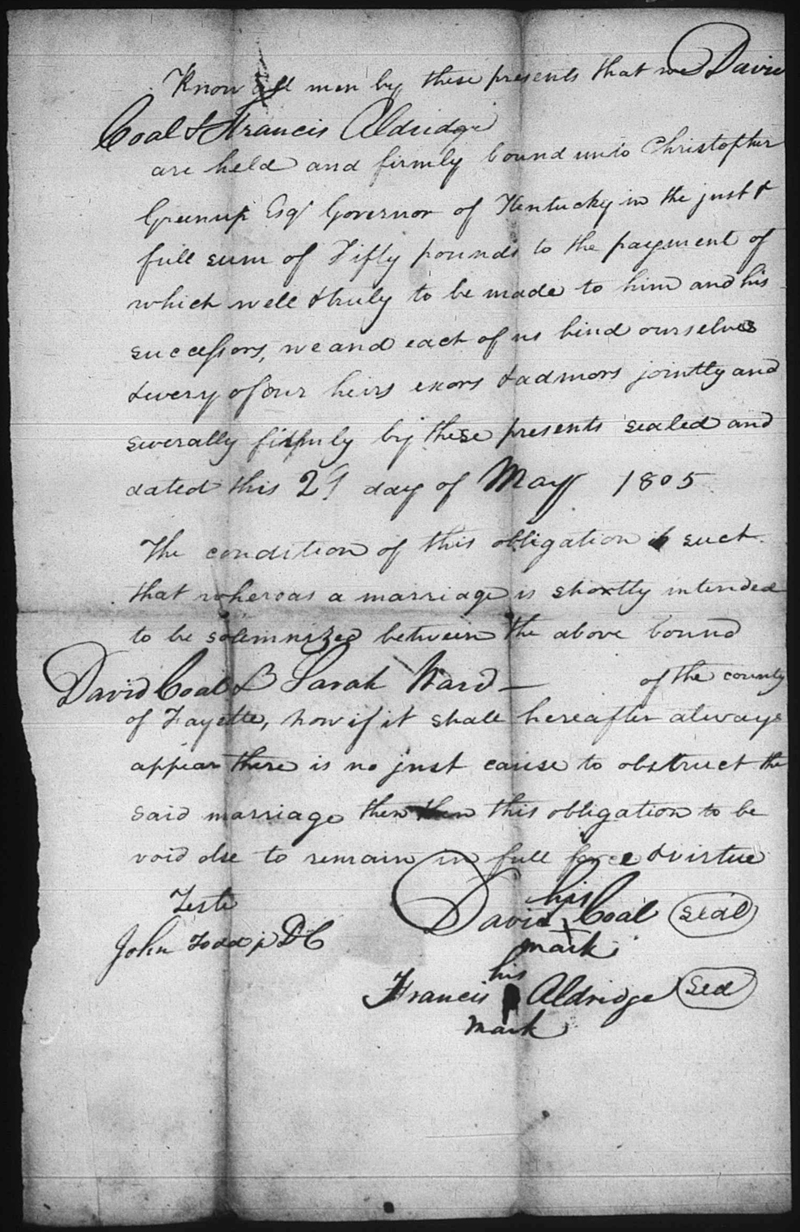 Know all men by these presents that we David
Coal & Francis Aldridge
are held and firmly bound unto Christopher
Greenup Esqr Governor of Kentucky in the just &
full sum of Fifty pounds to the payment of
which well & truly to be made to him and his
successors, we and each of us bind ourselves
& every of our heirs exors & admors jointly and
severally firmly by these presents sealed and
dated this day of May 1805
The condition of this obligation is such
that whereas a marriage is shortly intended
to be solemnized between the above bound
David Coal & Sarah Ward — of the county
of Fayette, now if it shall hereafter always
appear there is no just cause to obstruct the
said marriage then this obligation to be
void else to remain in full force & virtue
Teste
John Todd DC
his
David X Coal seal
mark
his
Francis Aldridge seal
mark